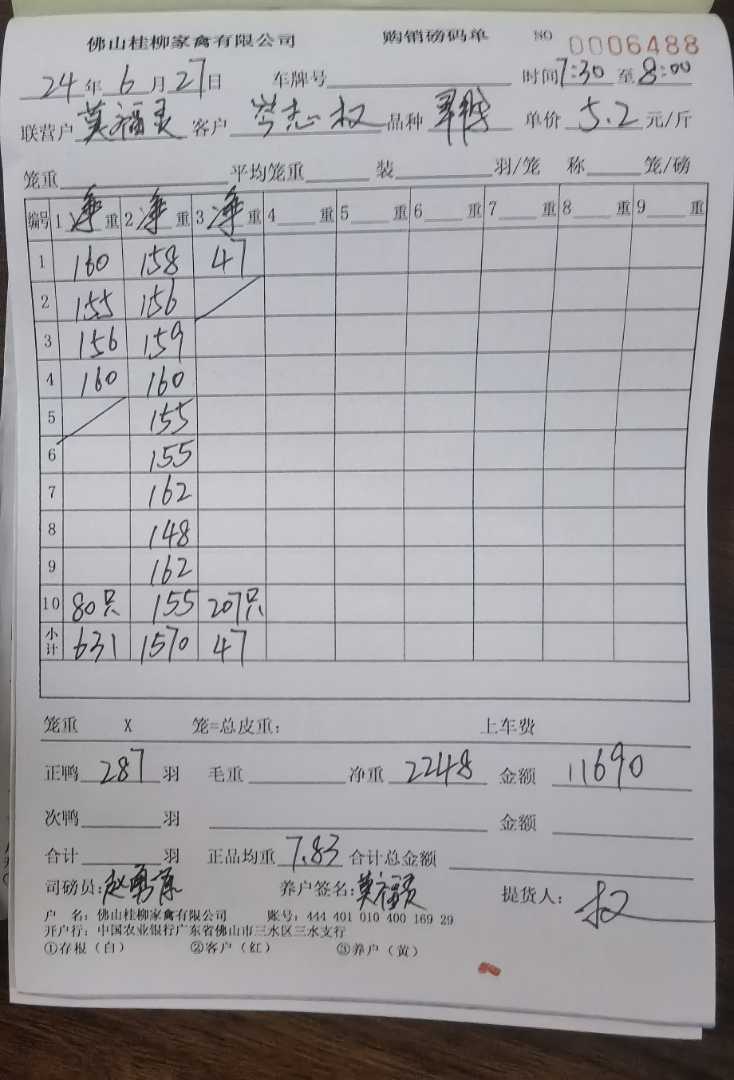 佛山桂柳家禽有限公司 购销磅码单 NO 0006488
24年6月27日 车牌号 时间7:30至8:00
联营户 莫福灵 客户 岑志权 品种 单价 5.2 元/斤
笼重 平均笼重 装 羽/笼 称 笼/磅
编号 1净重 2净重 3净重 4 重 5 重 6 重 7 重 8 重 9 重
1 160 158 47
2 155 156
3 156 159
4 160 160
5 155
6 155
7 162
8 148
9 162
10 80只 155 207只
小计 631 1570 47
笼重 X 笼=总皮重: 上车费
正鸭 287 羽 毛重 净重 2248 金额 11690
次鸭 羽 金额
合计 羽 正品均重 7.83 合计总金额
司磅员: 赵勇 养户签名: 莫福灵 提货人: 权
户 名: 佛山桂柳家禽有限公司 账号: 444 401 010 400 169 29
开户行: 中国农业银行广东省佛山市三水区三水支行
①存根(白) ②客户(红) ③养户(黄)